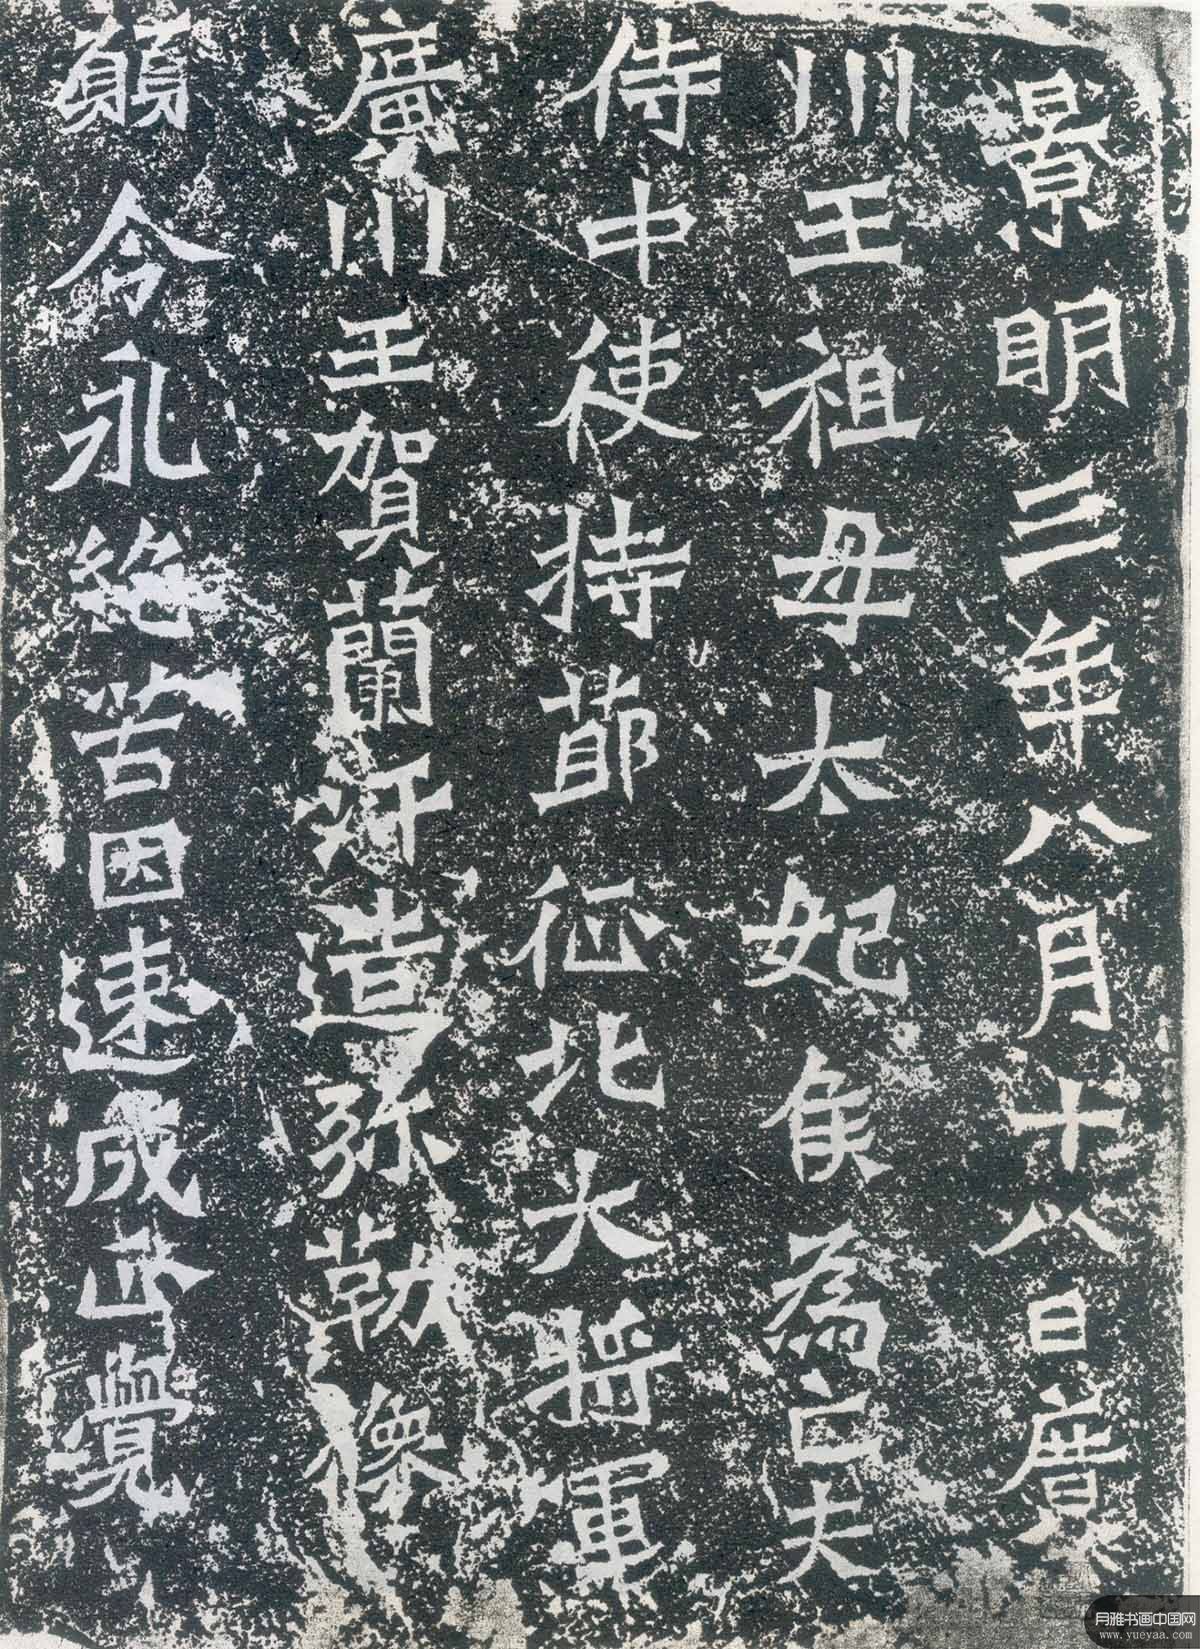 景明三年八月十八日廣
川王祖母太妃侯為亡夫
侍中使持節征北大將軍
廣川王賀蘭汗造弥勒像
願令永絕苦因速成正覺
月雅书画中国网
www.yueyaa.com